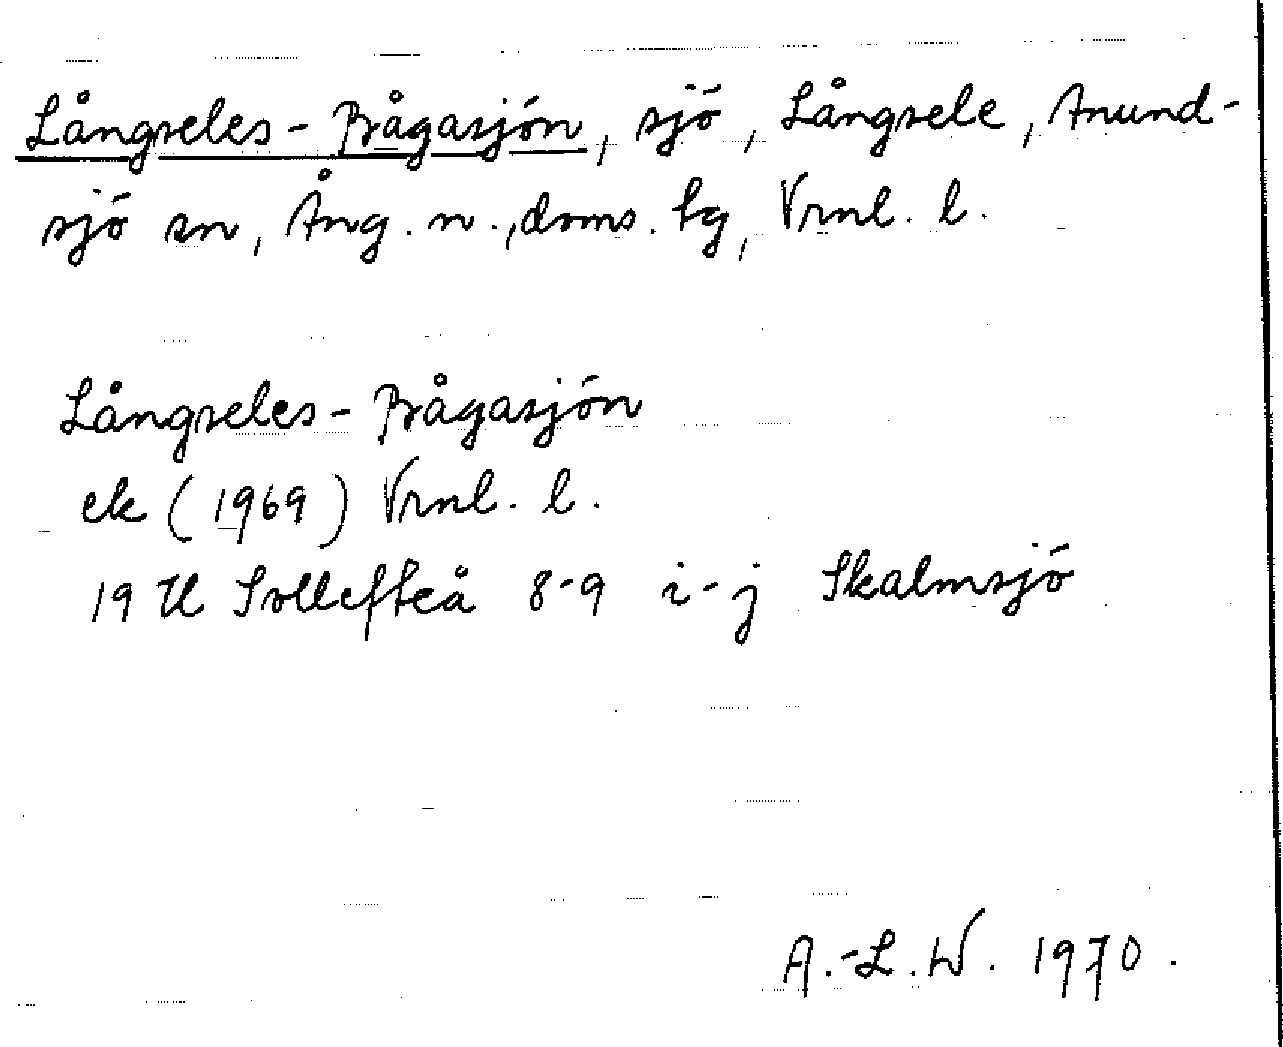 Långseles-Brågasjön, sjö, Långsele, Anund-
sjö sn, Ång. n., doms. tg, Vrml. l.
Långseles-Brågasjön
ek (1969) Vrml. l.
19 H Sollefteå 8-9 i-j Skalmsjö
A.-L.W. 1970.